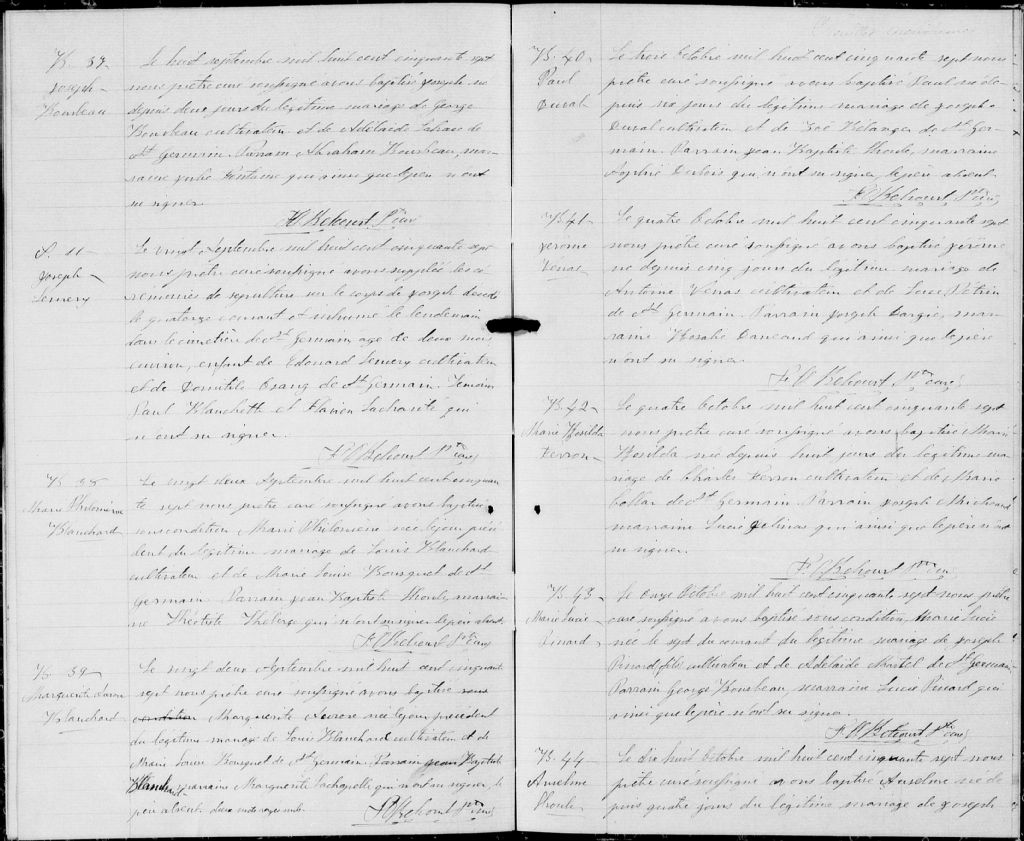 B. 37
Joseph
Bourbeau
Le huit septembre mil huit cent cinquante sept
nous prêtre curé soussigné avons baptisé Joseph né
depuis deux jours du légitime mariage de George
Bourbeau cultivateur et de Adélaïde
St Germain. Parrain Abraham Bourbeau, mar-
raine Julie Fontaine qui ainsi que le père n'ont
su signer.
Bélcourt Ptre curé
S. 11
Joseph
Lemery
Le vingt septembre mil huit cent cinquante sept
nous prêtre curé soussigné avons suppléé les cé-
rémonies de sépulture sur le corps de Joseph décédé
le quatorze courant et inhumé le lendemain
dans le cimetière de St Germain, age de deux mois
environ, enfant de Edouard Lemery cultivateur
et de Domitile de St Germain. Témoins
Paul Blanchette et Flavien Lacharité qui
n'ont su signer.
Bélcourt Ptre curé
B. 38
Marie Philomène
Blanchard
Le vingt deux Septembre mil huit cent cinquan
te sept nous prêtre curé soussigné avons baptisé
sous condition Marie Philomène née le jour précé
dent du légitime mariage de Louis Blanchard
cultivateur et de Marie Louise Bousquet de St
Germain. Parrain Jean Baptiste Houle, marrai-
ne Théotiste Theberge qui n'ont su signer le père absent
Bélcourt Ptre curé
B. 39
Marguerite Aurore
Blanchard
Le vingt deux Septembre mil huit cent cinquante
sept nous prêtre curé soussigné avons baptisé sous
condition Marguerite Aurore née le jour précédent
du légitime mariage de Louis Blanchard cultivateur et de
Marie Louise Bousquet de St Germain. Parrain Jean Baptiste
Blanchard, marraine Marguerite Lachapelle qui n'ont su signer, le
père absent. deux mots rayés nuls
Bélcourt Ptre curé
B. 40
Paul
Duval
Le trois Octobre mil huit cent cinquante sept nous
prêtre curé soussigné avons baptisé Paul né de-
puis six jours du légitime mariage de Joseph
Duval cultivateur et de Zoé Bélanger de St Ger-
main. Parrain Jean Baptiste Houle, marraine
Sophie Dubois qui n'ont su signer, le père absent.
Bélcourt Ptre curé
B. 41
Jérome
Vénas
Le quatre Octobre mil huit cent cinquante sept
nous prêtre curé soussigné avons baptisé Jérôme
né depuis cinq jours du légitime mariage de
Antoine Vénas cultivateur et de Luce Potvin
de St Germain. Parrain Joseph mar-
raine Rosalie qui ainsi que le père
n'ont su signer.
Bélcourt Ptre curé
B. 42
Marie Rosilda
Perron
Le quatre Octobre mil huit cent cinquante sept
nous prêtre curé soussigné avons baptisé Marie
Rosilda née depuis huit jours du légitime ma-
riage de Charles Perron cultivateur et de Marie
de St Germain. Parrain Joseph
marraine Lucie Gélinas qui ainsi que le père n'ont
su signer.
Bélcourt Ptre curé
B. 43
Marie Lucie
Pinard
Le onze Octobre mil huit cent cinquante sept nous prêtre
curé soussigné avons baptisé sous condition, Marie Lucie
née le sept du courant du légitime mariage de Joseph
Pinard, fils cultivateur et de Adelaide Martel de St Germain
Parrain George Bourbeau, marraine Lucie Pinard qui
ainsi que le père n'ont su signer.
Bélcourt Ptre curé
B. 44
Anselme
Houle
Le dix huit Octobre mil huit cent cinquante sept nous
prêtre curé soussigné avons baptisé Anselme né de
puis quatre jours du légitime mariage de Joseph